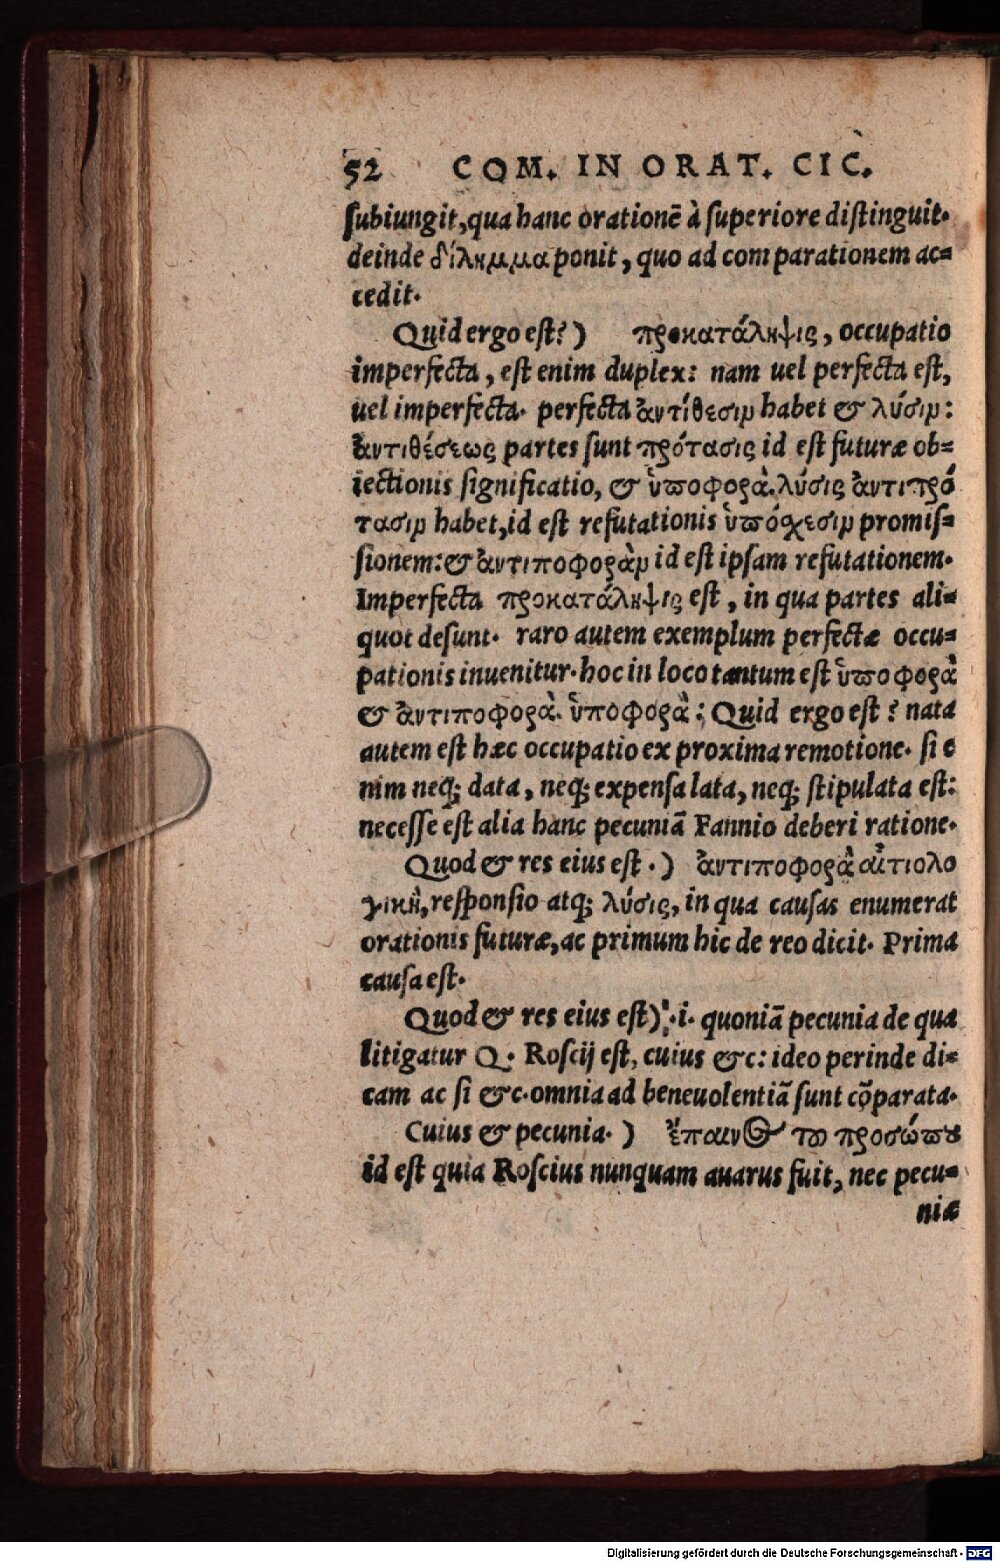 52 COM. IN ORAT. CIC.
subiungit, qua hanc orationē à superiore distinguit.
deinde δίλημμα ponit, quo ad comparationem ac=
cedit.
Quid ergo est?) προκατάληψις, occupatio
imperfecta, est enim duplex: nam uel perfecta est,
uel imperfecta. perfecta ἀντίθεσιμ habet & λύσιμ:
ἀντιθέσεως partes sunt πρότασις id est futuræ ob=
iectionis significatio, & ὑποφορὰ. λύσις ἀντιπρό
τασιμ habet, id est refutationis ὑπόχεσιμ promis=
sionem: & ἀντιποφορὰμ id est ipsam refutationem.
Imperfecta προκατάληψις est, in qua partes ali=
quot desunt. raro autem exemplum perfectæ occu=
pationis inuenitur. hoc in loco tantum est ὑποφορὰ
& ἀντιποφορὰ. ὑποφορὰ: Quid ergo est? nata
autem est hæc occupatio ex proxima remotione. si e
nim neq; data, neq; expensa lata, neq; stipulata est:
necesse est alia hanc pecuniā Fannio deberi ratione.
Quod & res eius est.) ἀντιποφορὰ αἰτιολο
γικὴ, responsio atq; λύσις, in qua causas enumerat
orationis futuræ, ac primum hic de reo dicit. Prima
causa est.
Quod & res eius est) .i. quoniā pecunia de qua
litigatur Q. Roscij est, cuius &c: ideo perinde di=
cam ac si &c. omnia ad beneuolentiā sunt cōparata.
Cuius & pecunia.) ἔπαινος τοῦ προσώπου
id est quia Roscius nunquam auarus fuit, nec pecu=
niæ
Digitalisierung gefördert durch die Deutsche Forschungsgemeinschaft - DFG